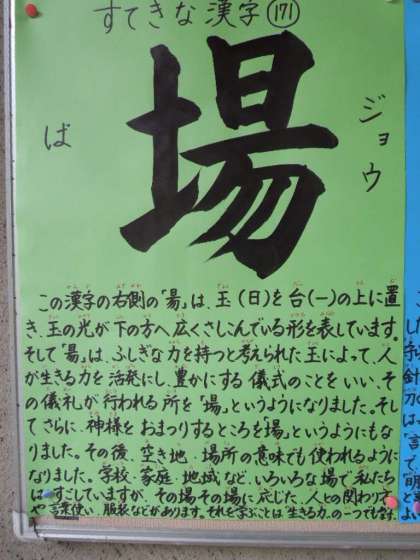 すてきな漢字 171
場
ば
ジョウ
この漢字の右側の「昜」は、玉(日)を台(一)の上に置
き、玉の光が下の方へ広くさしこんでいる形を表しています。
そして「昜」は、ふしぎな力を持つと考えられた玉によって、人
が生きる力を活発にし、豊かにする儀式のことをいい、そ
の儀礼が行われる所を「場」というようになりました。そし
てさらに、神様をおまつりするところを「場」というようにもな
りました。その後、空き地・場所の意味でも使われるように
なりました。学校・家庭・地域など、いろいろな場で私たち
はすごしていますが、その場その場に応じた、人との関わり方
や言葉使い、服装などがあります。それを学ぶことは「生きる力」の一つでもあります。